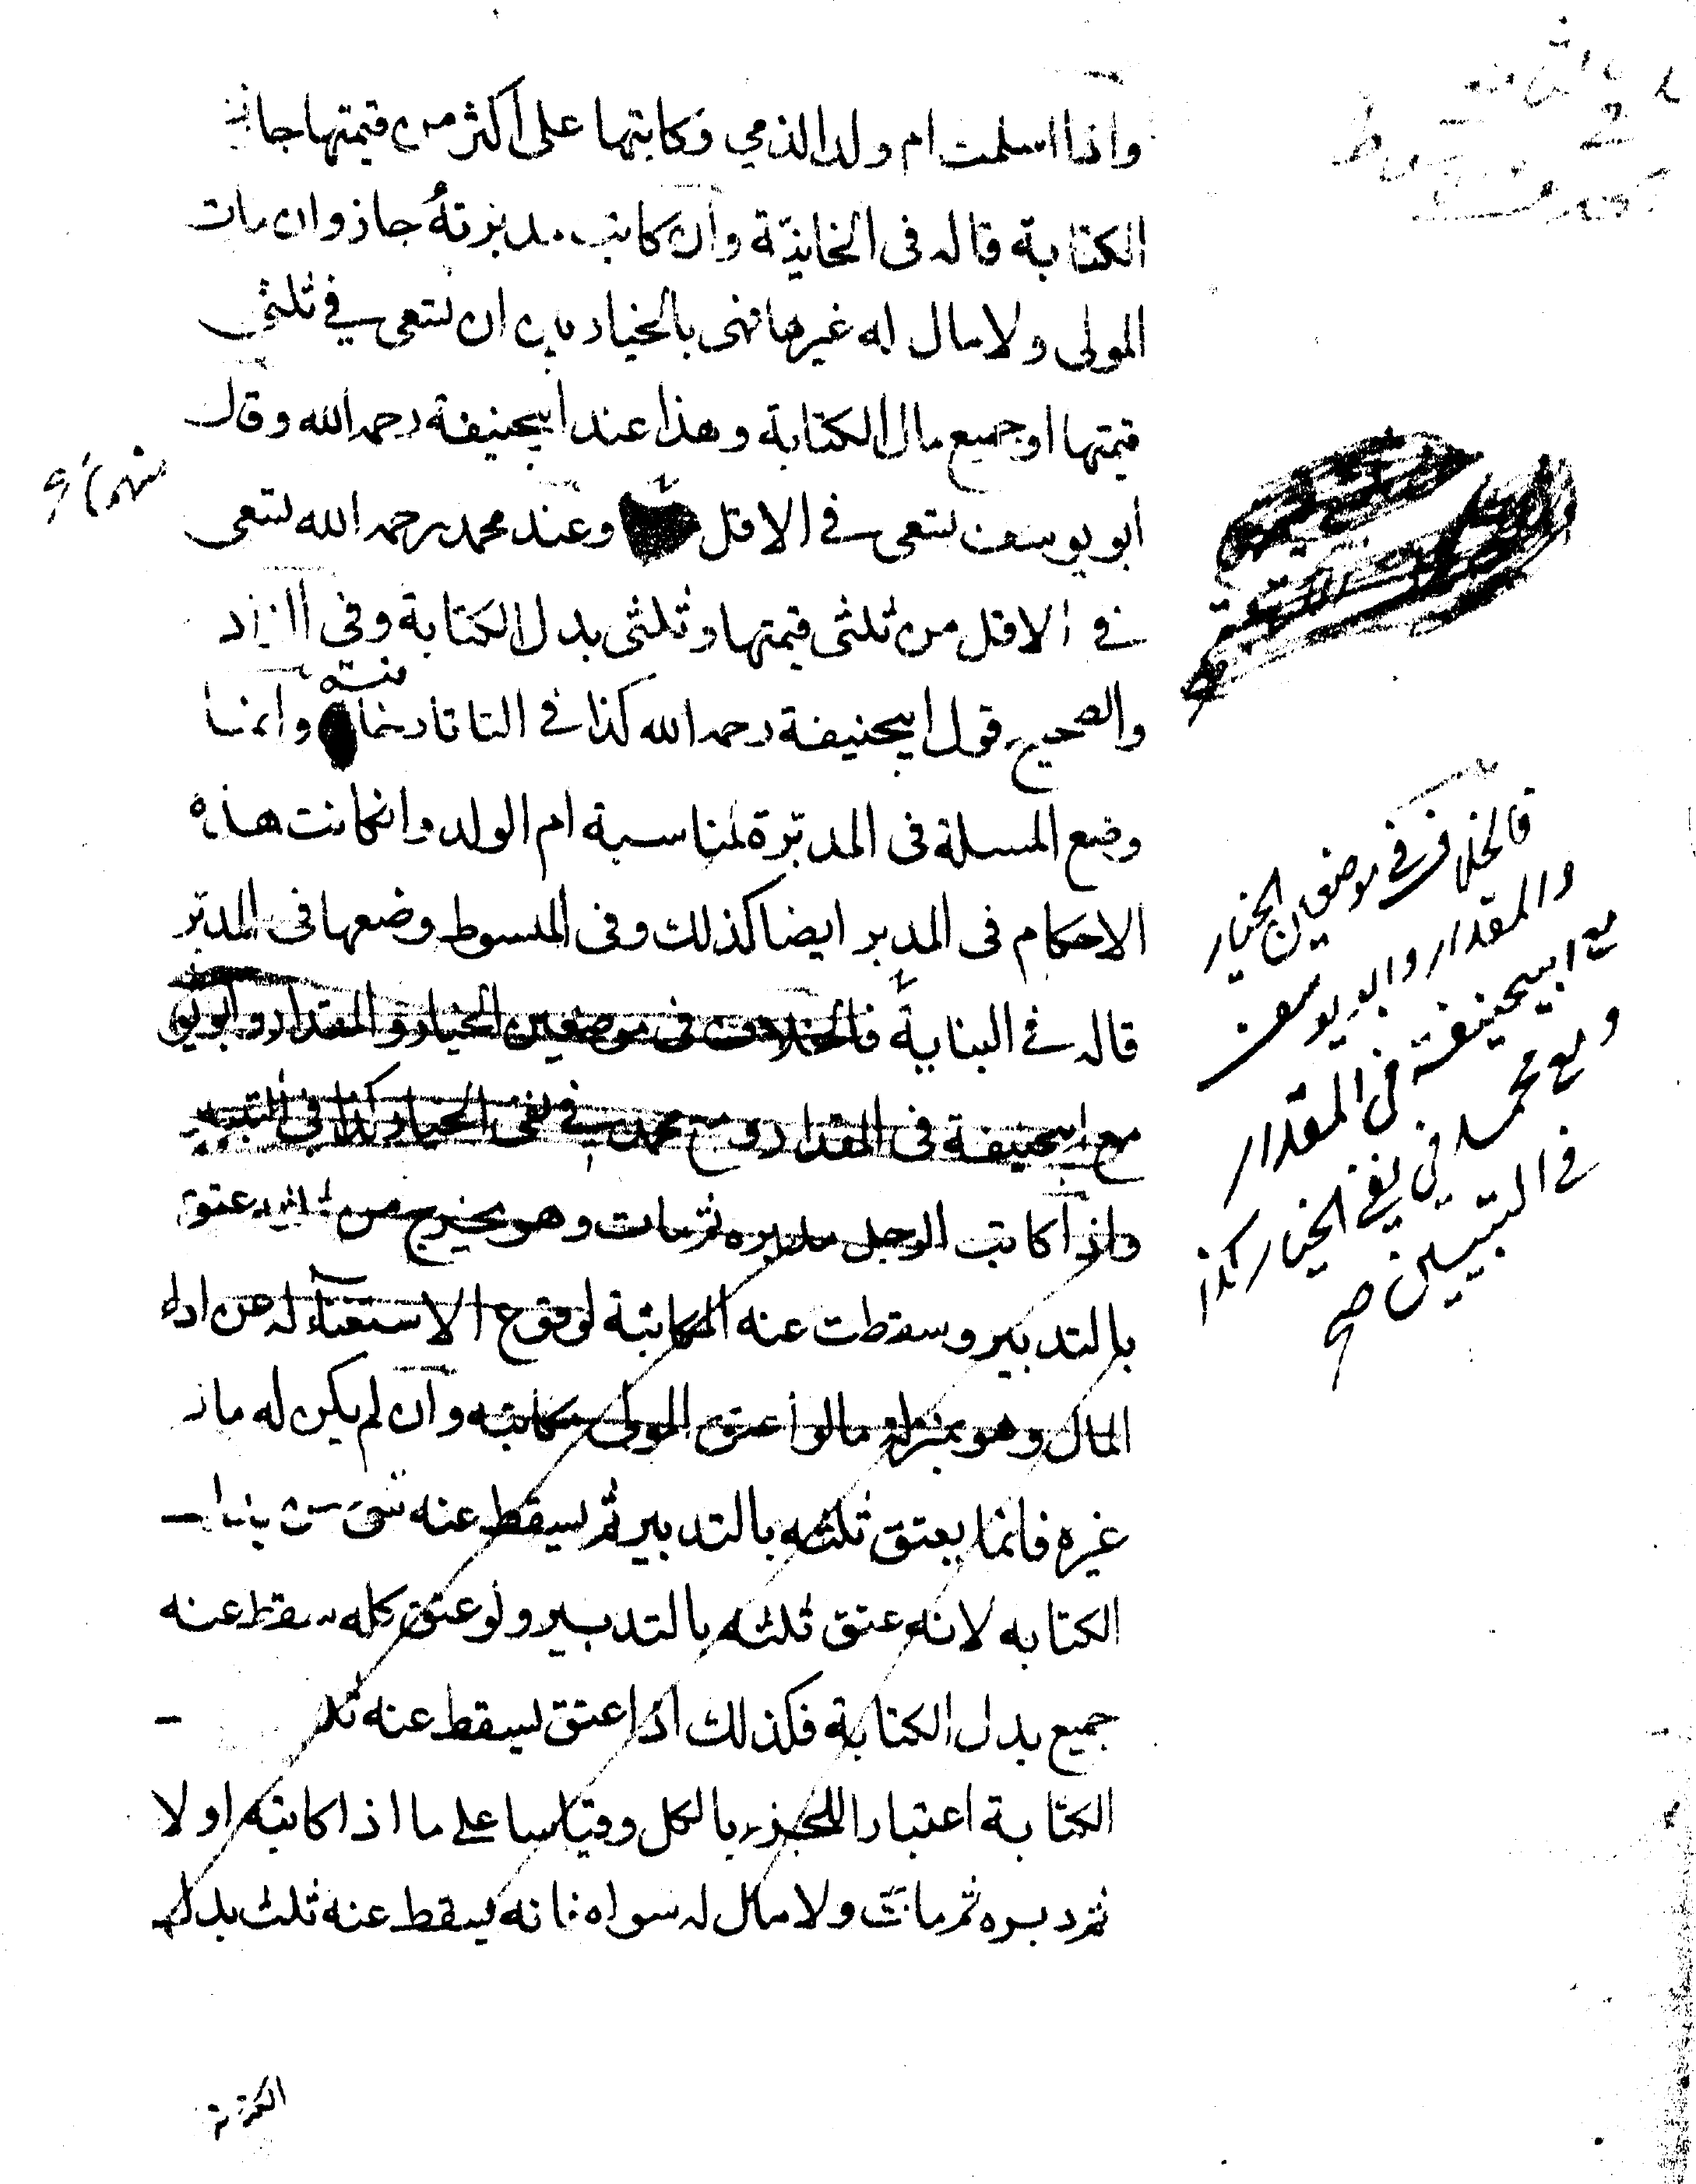 واذا اسلمت ام ولد الذمي وكاتبها على اكثر من قيمتها جاز
الكتابة قاله فى الخانية وان كاتب مدبرته جاز وان مات
المولى ولا مال له غيرها فهى بالخيار بين ان تسعى فى ثلثى
قيمتها او جميع مال الكتابة وهذا عند ابيحنيفة رحمه الله وقال
ابو يوسف تسعى فى الاقل وعند محمد رحمه الله تسعى
منهما
فى الاقل من ثلثى قيمتها وثلثى بدل الكتابة وفى الزاد
والصحيح قول ابيحنيفة رحمه الله كذا فى التاتارخانية وانما
وضع المسلة فى المدبّرة لمناسبة ام الولد وانكانت هذه
الاحكام فى المدبر ايضا كذلك وفى المبسوط وضعها فى المدبّر
قاله فى البناية فالخلاف فى موضعين الخيار والمقدار وابو يو
مع ابيحنيفة فى المقدار ومع محمد فى نفى الخيار كذا فى التبيين
واذا كاتب الرجل مدبره ثم مات وهو يخرج من ثلثه عتق
بالتدبير وسقطت عنه المكاتبة لوقوع الاستغناء له عن اداء
المال وهو بمنزلة ما لو اعتق المولى مكاتبه وان لم يكن له مال
غيره فانما يعتق ثلثه بالتدبير ثم يسقط عنه شئ من
الكتابه لانه عتق ثلثه بالتدبير ولو عتق كله سقط عنه
جميع بدل الكتابة فكذلك اذا عتق يسقط عنه
الكتابة اعتبارا للجزء بالكل وقياسا على ما اذا كاتبه اولا
ثم دبره ثم مات ولا مال له سواه فانه يسقط عنه ثلث بدل
فالخلاف فى موضعين الخيار
والمقدار وابو يوسف
مع ابيحنيفة فى المقدار
ومع محمد فى نفى الخيار كذا
فى التبيين صح